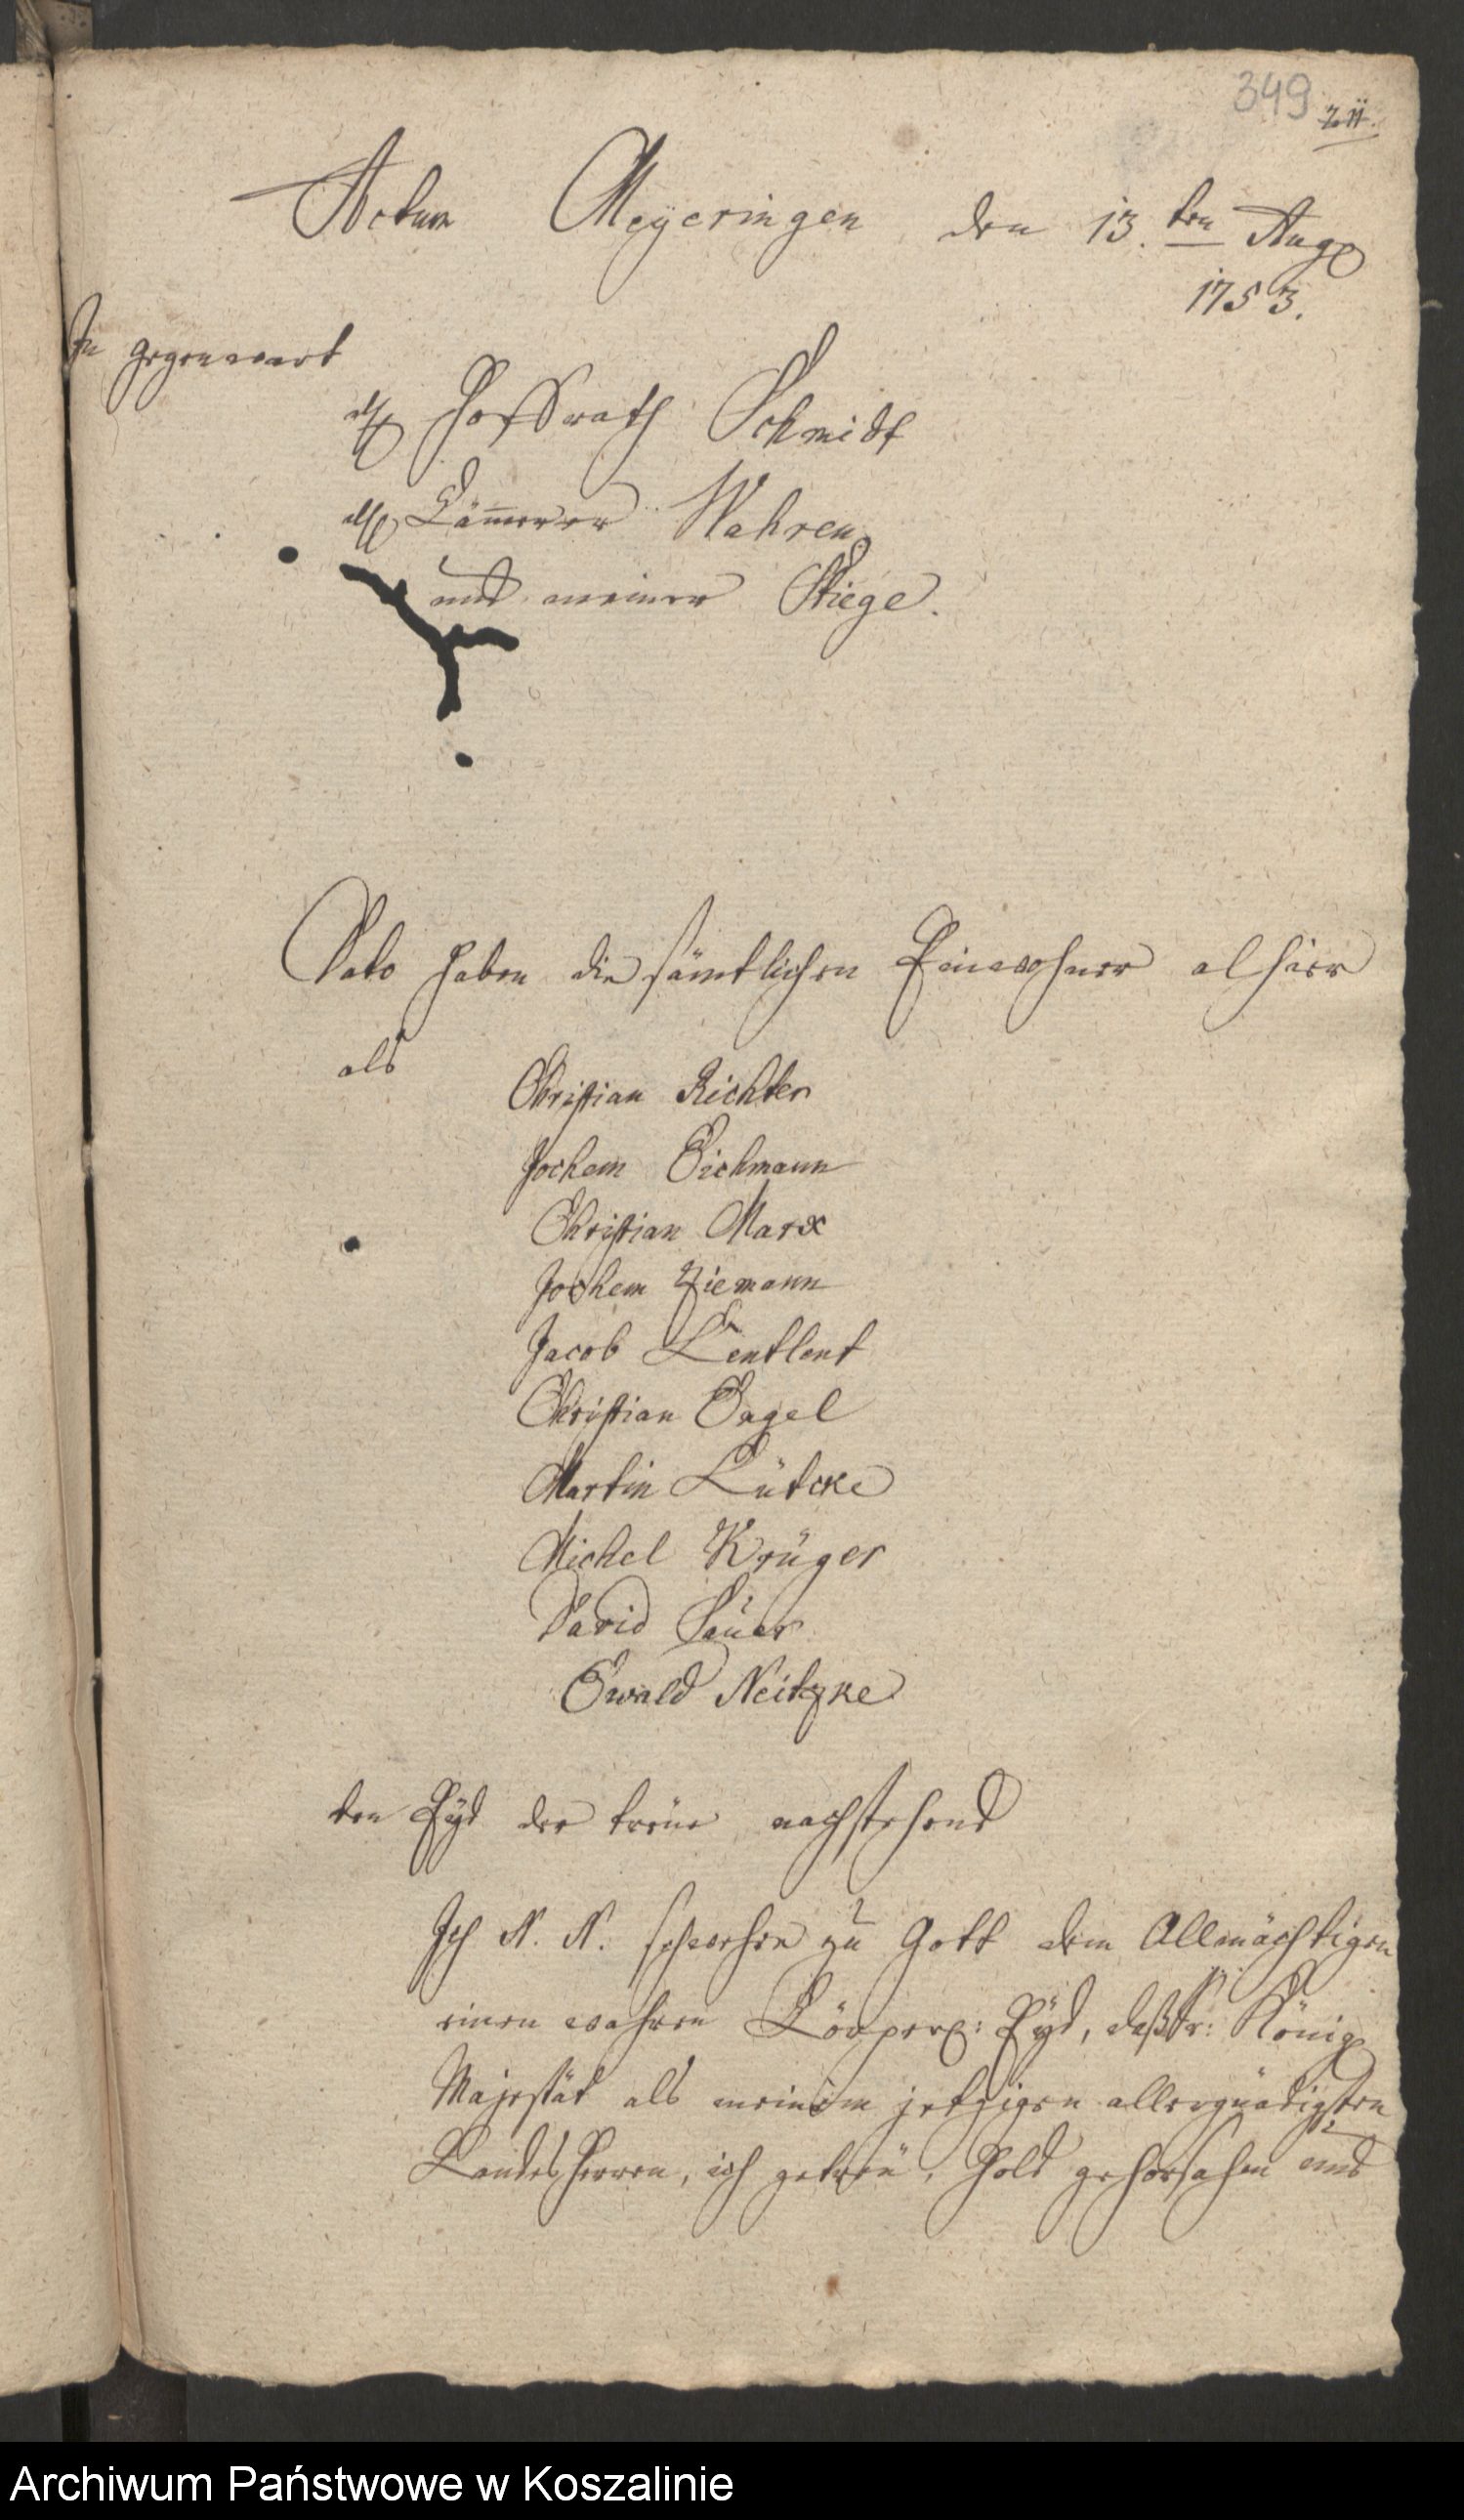 349
Actum Meyeringen den 13.ten Aug
1753.
In gegenwart
des HoffRath Schmidt
des Cämmerer Wahren
und meiner Stiege.
Dato haben die sämtlichen Einwohner alhier
als
Christian Richter
Jochem Eichmann
Christian Marx
Jochem Ziemann
Jacob Lentlent
Christian Gagel
Martin Lütcke
Michel Krüger
David Sauer
Ewald Neitzke
den Eyd der treue nachstehend
Ich N. N. schwehre zu Gott dem Allmächtigen
einen wahren Cörperl: Eyd, daß Sr: König
Majestät als meinem jetzigen allergnädigsten
Landes Herren, ich getreu, hold gehorsahm und
Archiwum Państwowe w Koszalinie